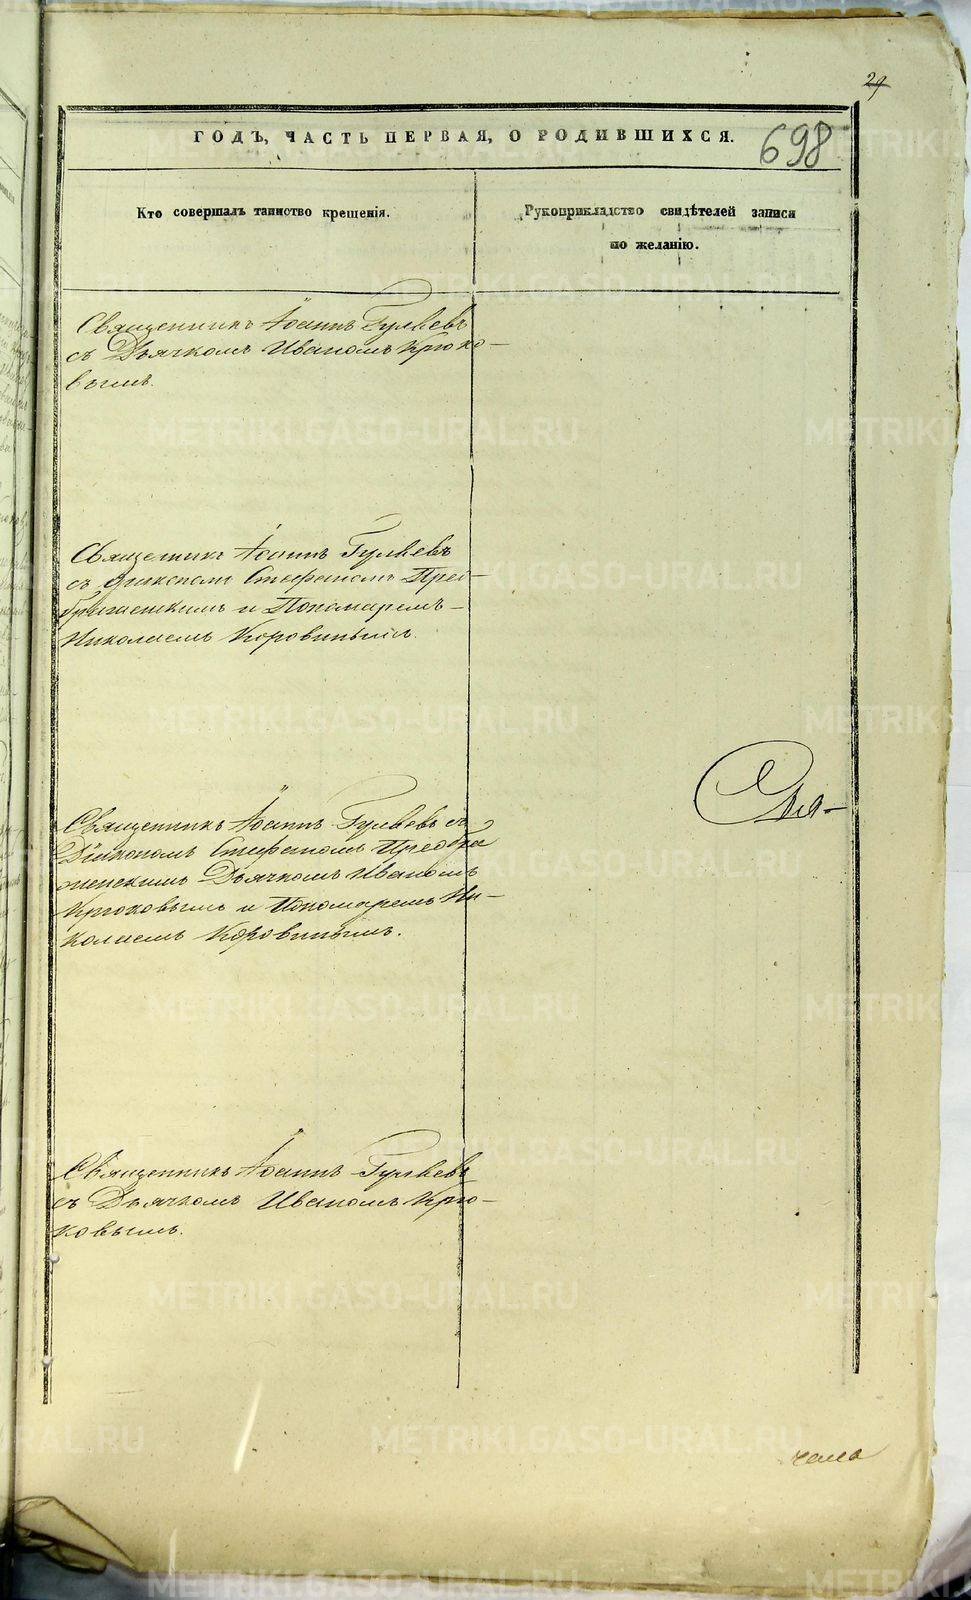 29
698
ГОДЪ, ЧАСТЬ ПЕРВАЯ, О РОДИВШИХСЯ.
Кто совершалъ таинство крещенія.
Рукоприкладство свидѣтелей записи
по желанію.
Священникъ Іоаннъ Гуляевъ
съ Дьячкомъ Иваномъ Крюко-
вымъ.
Священникъ Іоаннъ Гуляевъ
съ діакономъ Стефаномъ Прео-
браженскимъ и Пономаремъ
Николаемъ Коровинымъ.
Священникъ Іоаннъ Гуляевъ съ
Діакономъ Стефаномъ Преобра
женскимъ Дьячкомъ Иваномъ
Крюковымъ и Пономаремъ Ни-
колаемъ Коровинымъ.
Священникъ Іоаннъ Гуляевъ
съ Дьячкомъ Иваномъ Крю-
ковымъ.
METRIKI.GASO-URAL.RU